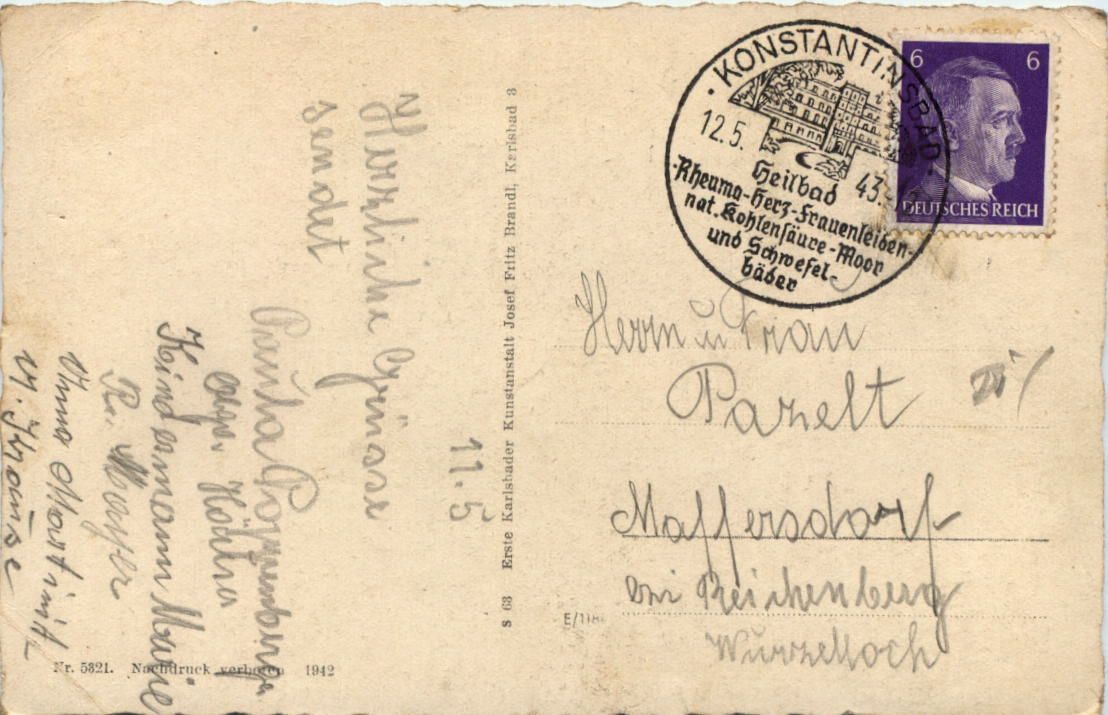 11.5
Herzliche Grüsse
sendet
Paula
Hödlna
Kindermann Marie
R. Mayer
Anna Martini
M. Krause
Nr. 5321. Nachdruck verboten 1942
S 63 Erste Karlsbader Kunstanstalt Josef Fritz Brandl, Karlsbad 3
E/118
KONSTANTINSBAD
12.5. 43.
Heilbad
Rheuma-Herz-Frauenleiden-
nat. Kohlensäure-Moor
und Schwefel-
bäder
6 6
DEUTSCHES REICH
Herrn u Frau
Pazelt
Maffersdorf
bei Reichenberg
Wurzelloch